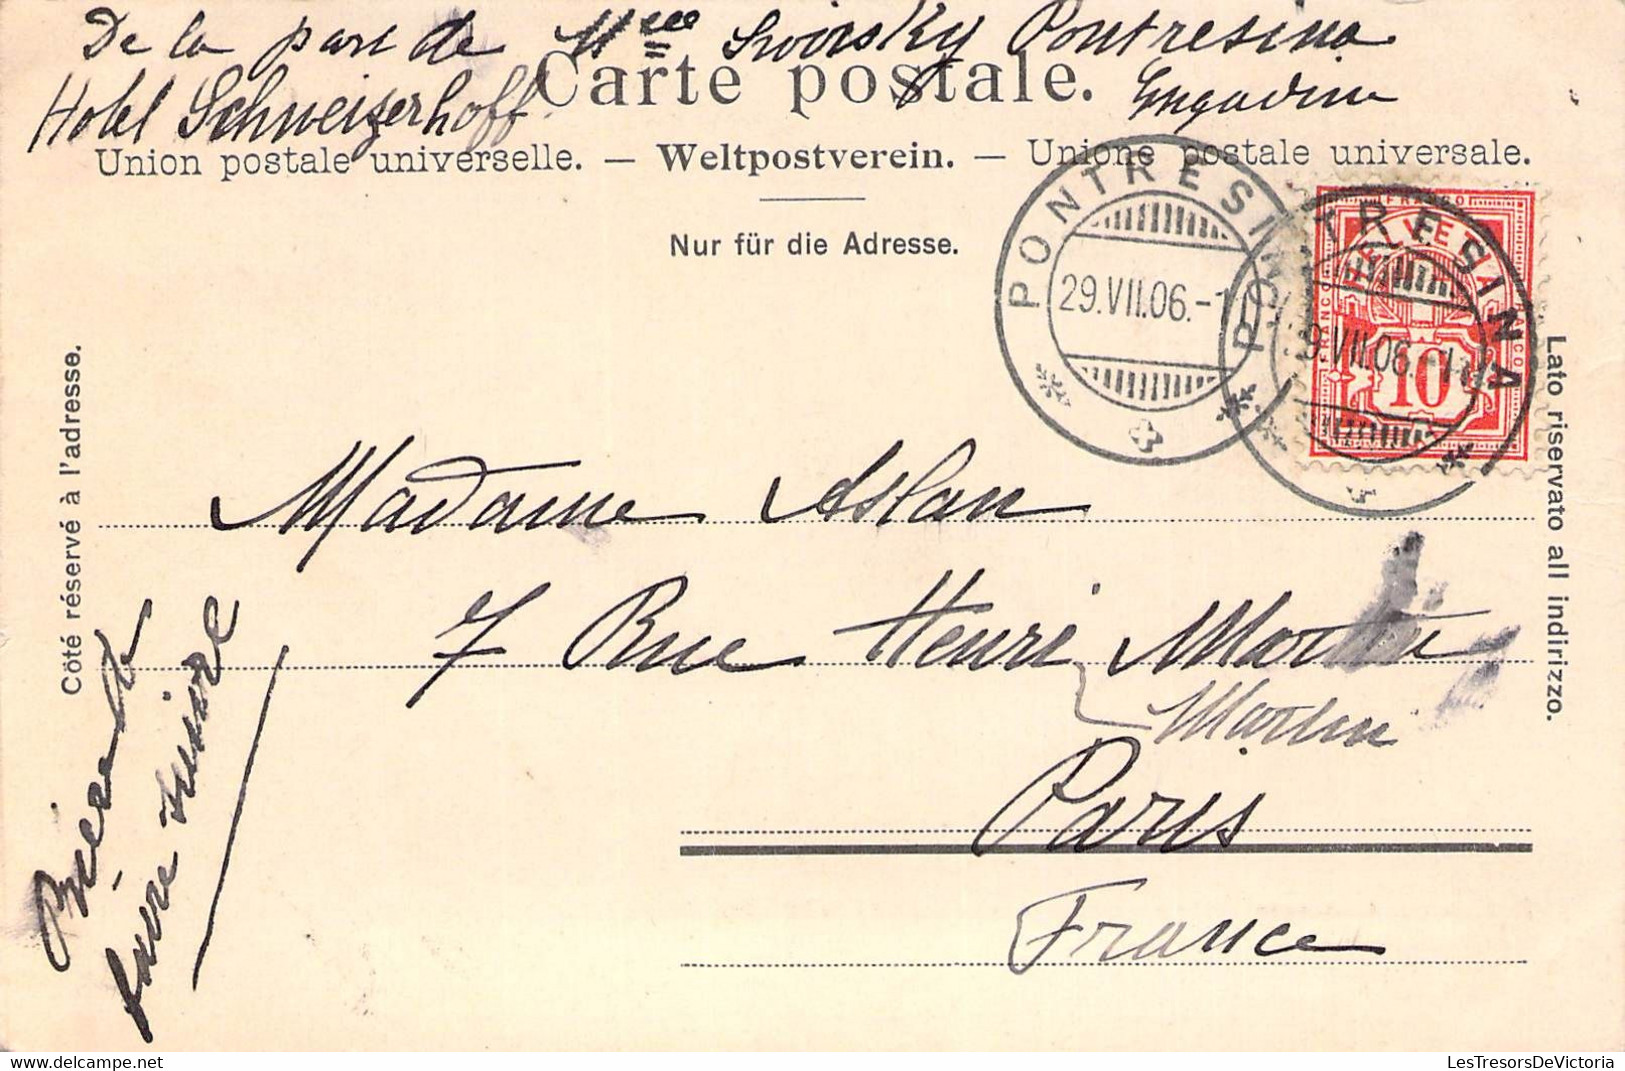 De la part de Mme Swirsky Pontresina
Hotel Schweizerhoff
Engadine
Carte postale.
Union postale universelle. — Weltpostverein. — Unione postale universale.
Nur für die Adresse.
PONTRESINA
29.VII.06.-1
PONTRESINA
9.VII.06.-1
FRANCO
HELVETIA
FRANCO
FRANCO
10
Côté réservé à l'adresse.
Lato riservato all indirizzo.
Madame Aslan
7 Rue Henri Martin
Martin
Paris
France
lettre suivre
LesTresorsDeVictoria